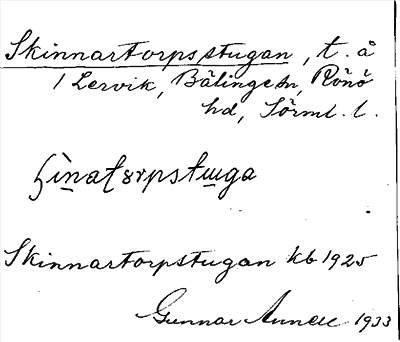 Skinnartorpsstugan, t. å
1 Lervik, Bälinge sn, Rönö
hd, Sörml. l.
ʃi̱naʈɷrpstu̱ga
Skinnartorpstugan kb 1925
Gunnar Annell 1933